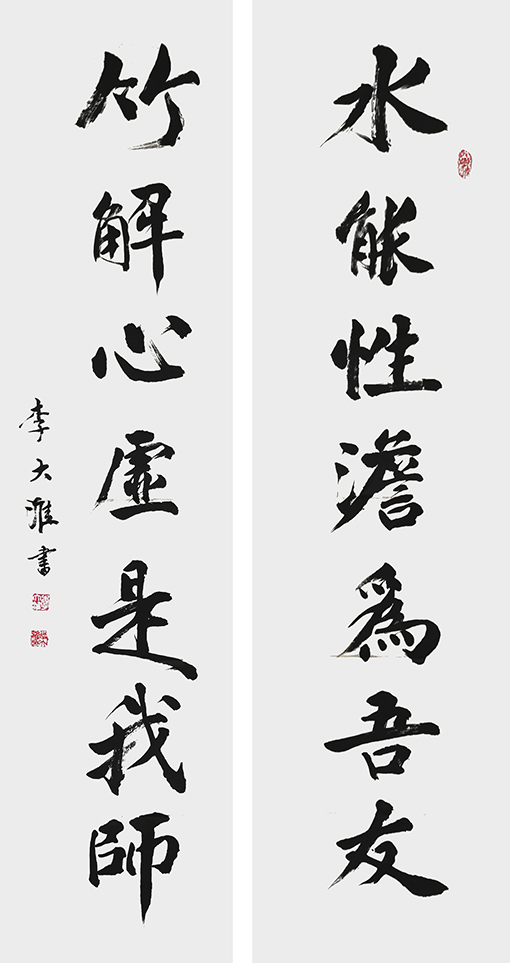 水能性澹為吾友
竹解心虛是我師
李大淮書